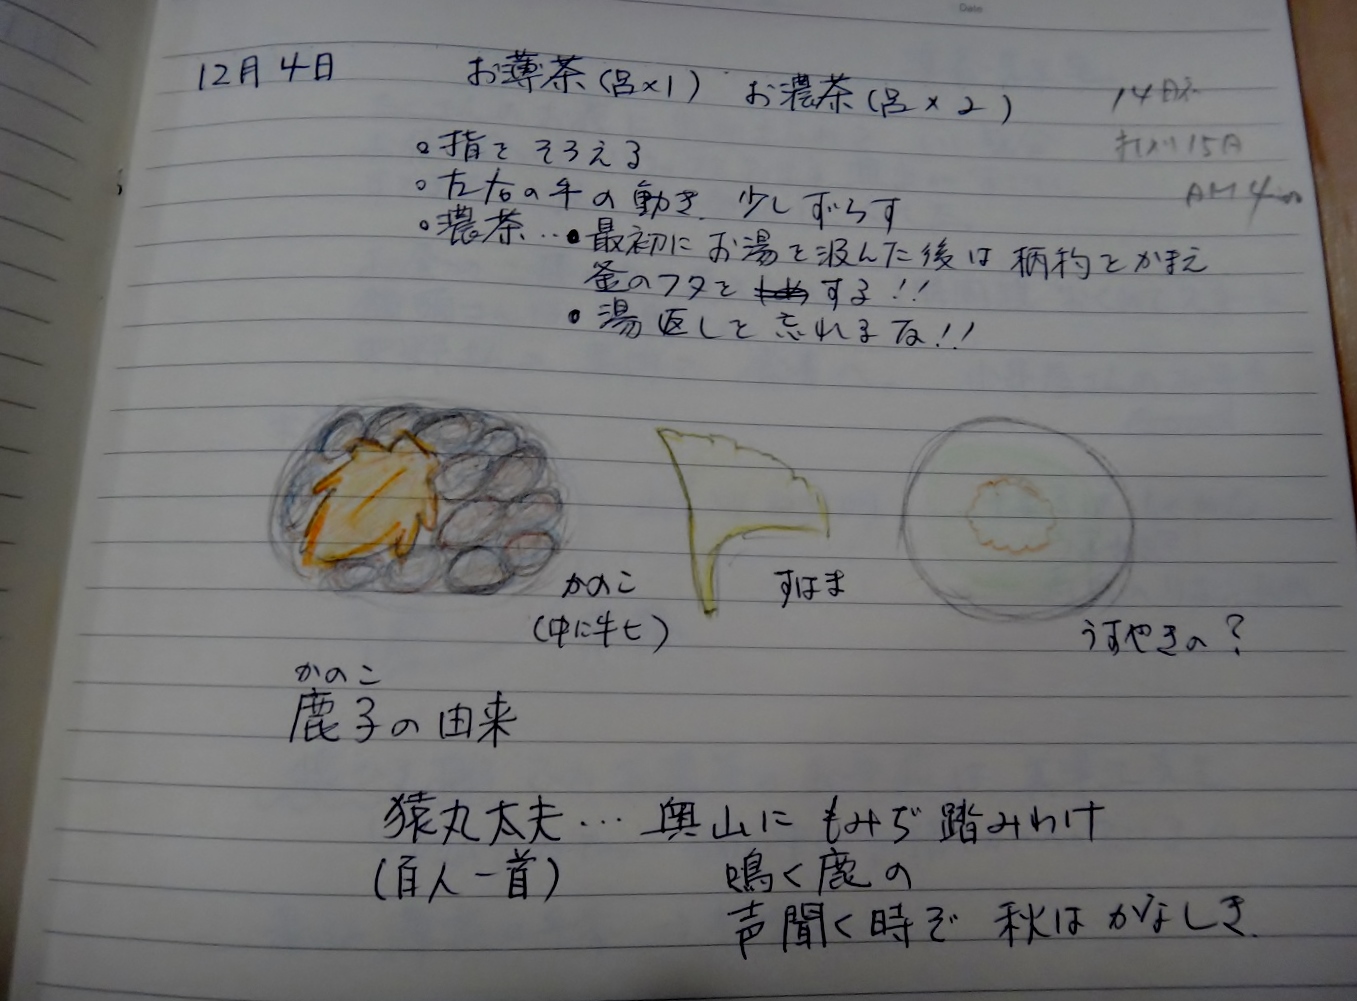 Date
12月4日 お薄茶(呂×1) お濃茶(呂×2)
14日
15日
AM 4
。指を そろえる
。左右の手の動き 少しずらす
。濃茶…●最初にお湯を汲んだ後は 柄杓をかまえ
釜のフタを する!!
●湯返しを忘れるな!!
かのこ
(中に牛ヒ)
すはま
うすやきの?
かのこ
鹿子の由来
猿丸太夫… 奥山に もみぢ 踏みわけ
(百人一首) 鳴く鹿の
声聞く時ぞ 秋は かなしき